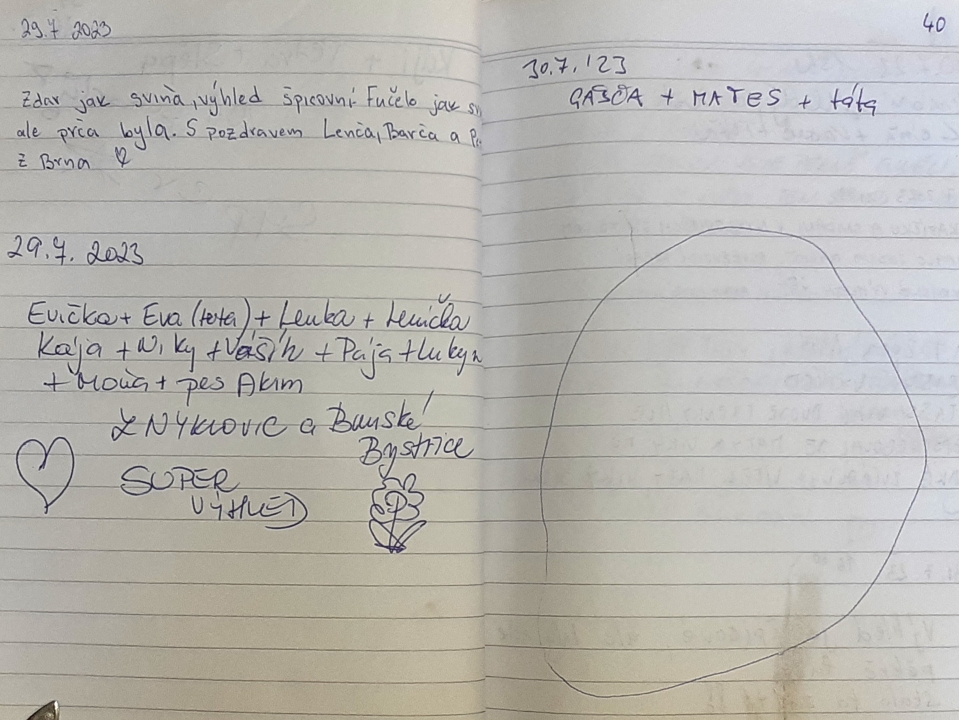 29.7 2023
Zdar jak sviňa, výhled špicovní. Fučelo jak
ale prča byla. S pozdravem Lenča, Barča a
z Brna
29.7. 2023
Evička + Eva (teta) + Lenka + Lenička
Kája + Niky + Vašík + Pája + Luky
+ Moňa + pes Akim
Z NÝKLOVIC a Banské
Bystrice
SUPER
VÝHLED
40
30.7.'23
GÁBČA + MATES + táta